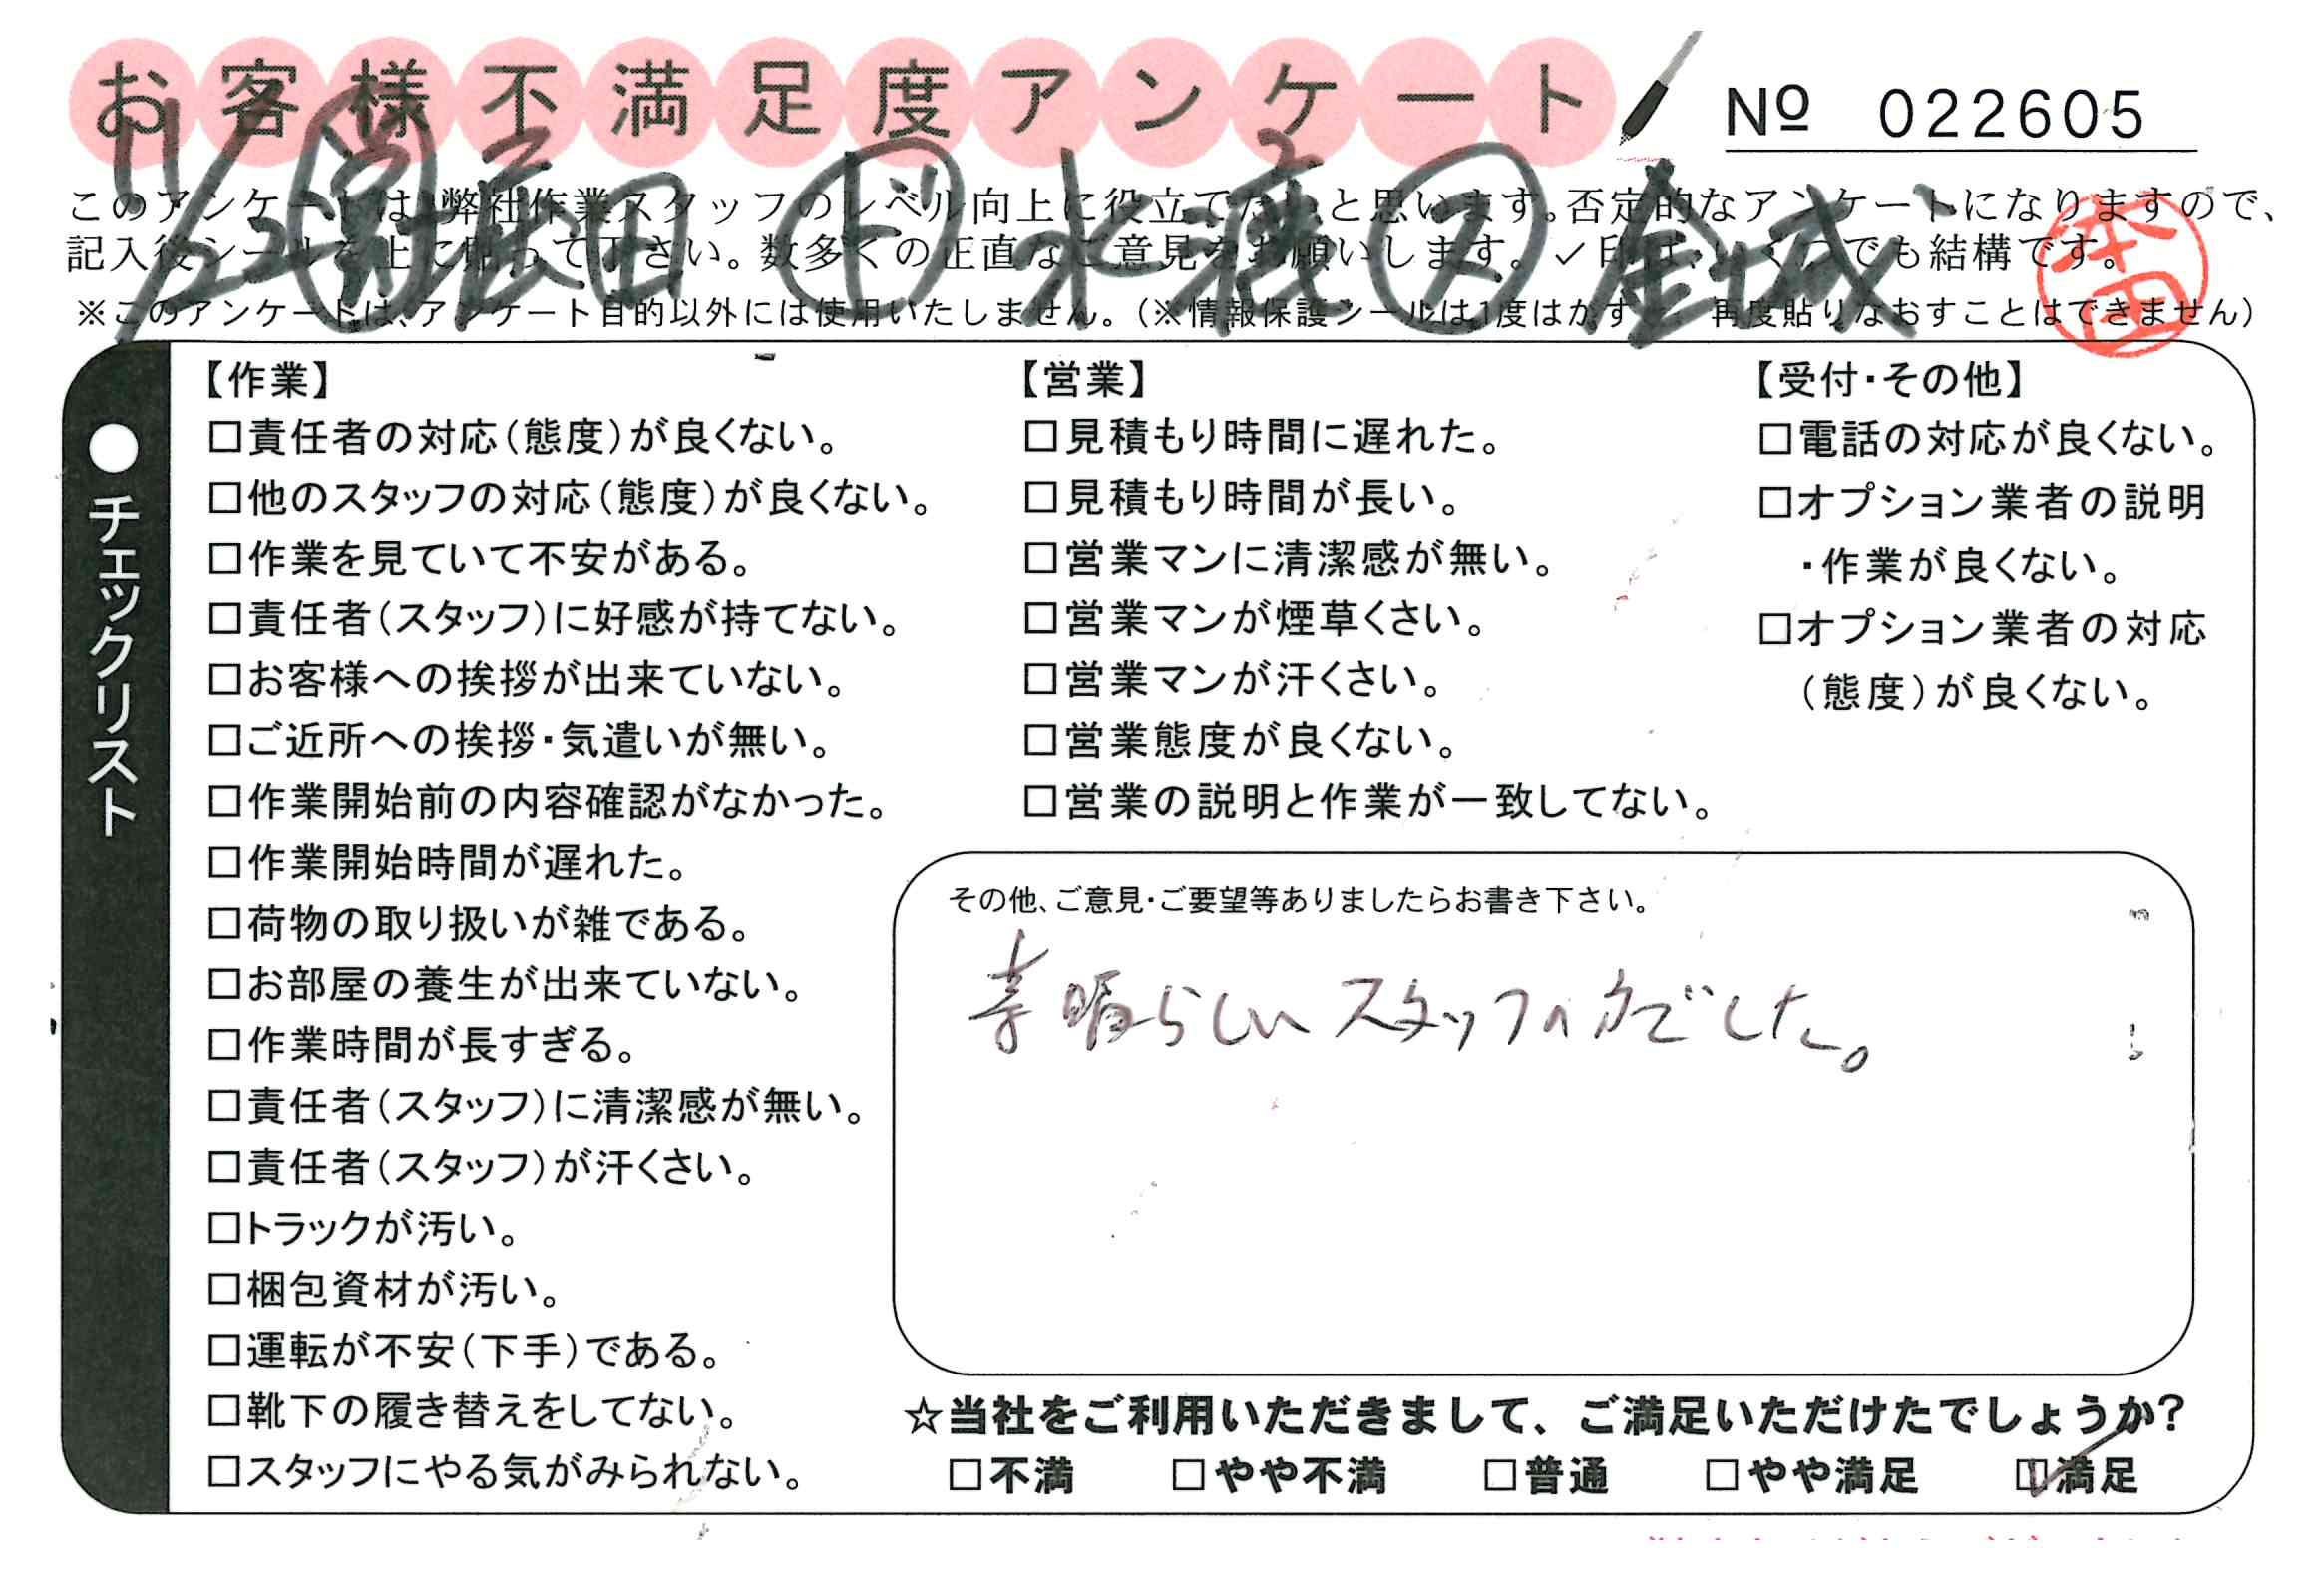 お客様不満足度アンケート
Nº 022605
11/22 営 辰田 ド 水流 ス 金城
このアンケートは、弊社作業スタッフのレベル向上に役立てたいと思います。否定的なアンケートになりますので、
記入後シールを上に貼って下さい。数多くの正直なご意見をお願いします。✓印は、いくつでも結構です。
本田
※このアンケートは、アンケート目的以外には使用いたしません。(※情報保護シールは1度はがすと、再度貼りなおすことはできません)
●チェックリスト
【作業】
□責任者の対応(態度)が良くない。
□他のスタッフの対応(態度)が良くない。
□作業を見ていて不安がある。
□責任者(スタッフ)に好感が持てない。
□お客様への挨拶が出来ていない。
□ご近所への挨拶・気遣いが無い。
□作業開始前の内容確認がなかった。
□作業開始時間が遅れた。
□荷物の取り扱いが雑である。
□お部屋の養生が出来ていない。
□作業時間が長すぎる。
□責任者(スタッフ)に清潔感が無い。
□責任者(スタッフ)が汗くさい。
□トラックが汚い。
□梱包資材が汚い。
□運転が不安(下手)である。
□靴下の履き替えをしてない。
□スタッフにやる気がみられない。
【営業】
□見積もり時間に遅れた。
□見積もり時間が長い。
□営業マンに清潔感が無い。
□営業マンが煙草くさい。
□営業マンが汗くさい。
□営業態度が良くない。
□営業の説明と作業が一致してない。
【受付・その他】
□電話の対応が良くない。
□オプション業者の説明
・作業が良くない。
□オプション業者の対応
(態度)が良くない。
その他、ご意見・ご要望等ありましたらお書き下さい。
素晴らしいスタッフの方でした。
☆当社をご利用いただきまして、ご満足いただけたでしょうか?
□不満 □やや不満 □普通 □やや満足 ☑満足